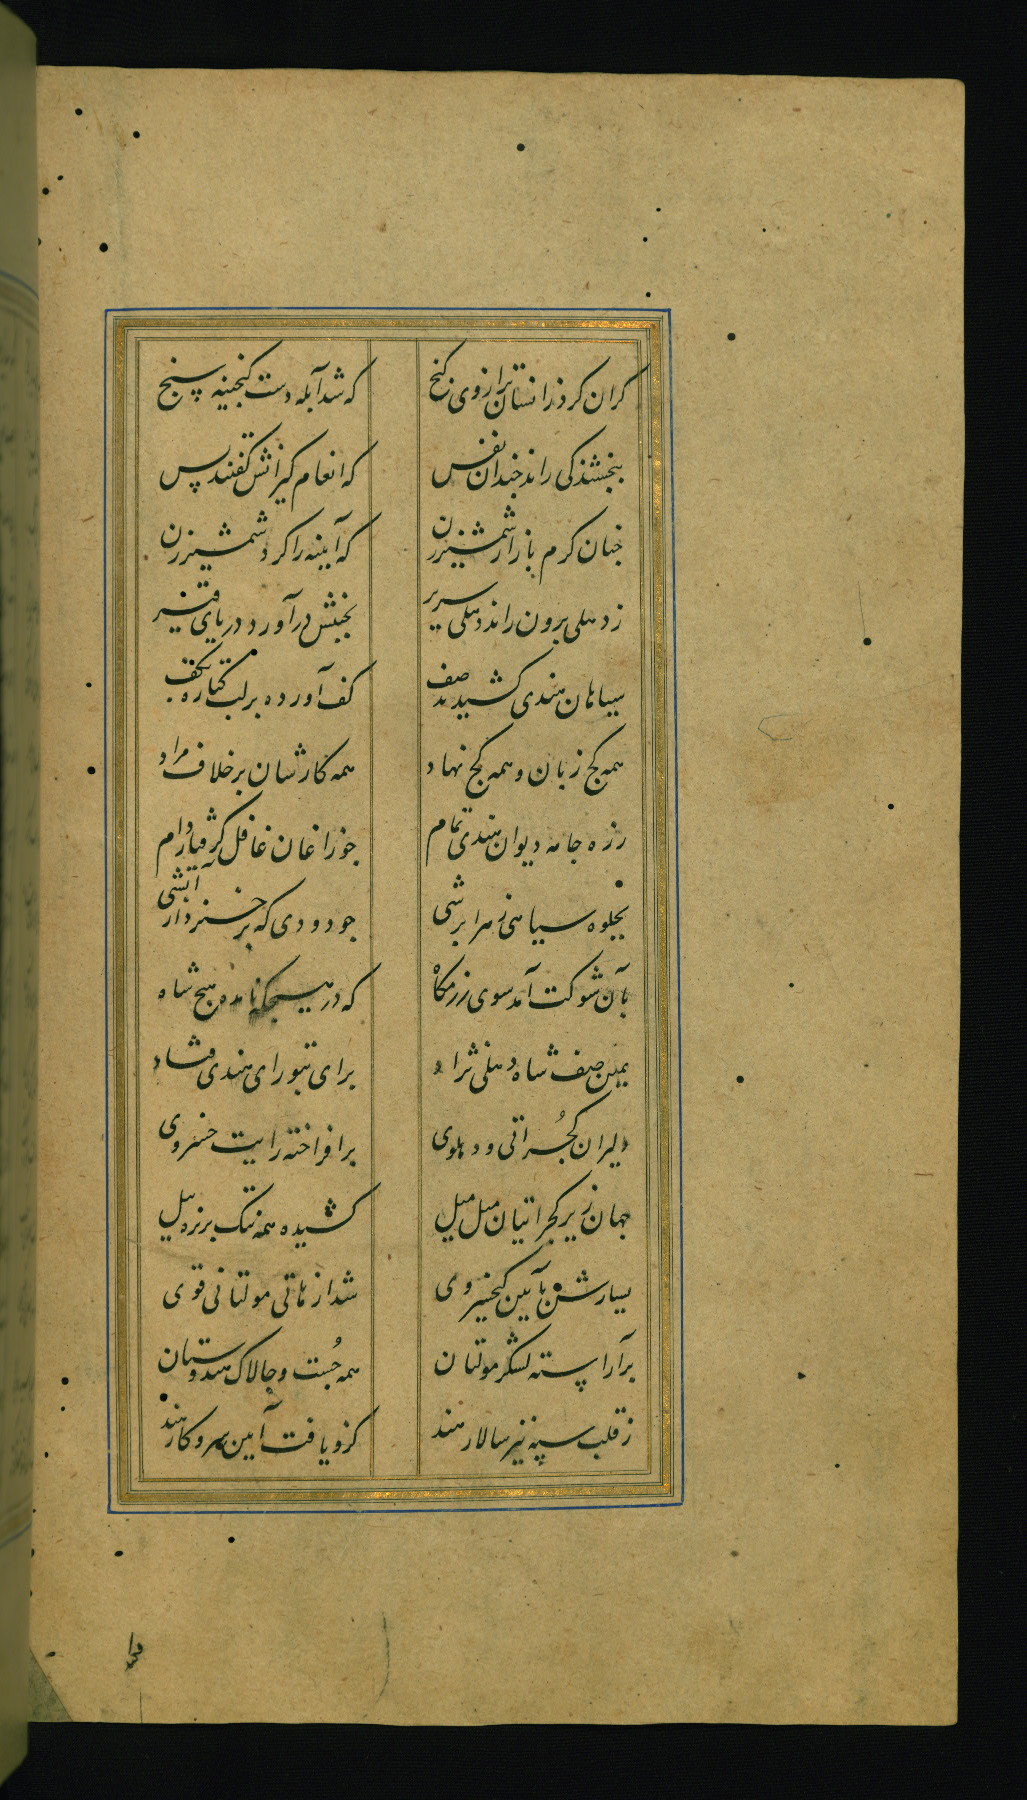 کران کرد زانسان ترازوی کنج که شد آبله دست کنجینه سنج
ببخشندکی راند چندان نفس که انعام کیرانش کفتند بس
چنان کرم بازار شمشیرزن که آیینه را کرد شمشیرزن
ز دهلی برون راند دهلی سریر بجنبش درآورد دریای قیر
سیاهان هندی کشیدند صف کف آورده بر لب کتاره بکف
همه کج زبان و همه کج نهاد همه کارشان بر خلاف مراد
زره جامه دیوان هندی تمام چو زاغان غافل کرفتار دام
بجلوه سیاهی ز هر ابرشی چو دودی که برخیزد از آتشی
بآن شوکت آمد سوی رزمکاه که در هیچکه نامده هیچ شاه
یمین صف شاه دهلی نژاد برای تبورای هندی فتاد
دلیران کجراتی و دهلوی برافراخته رایت خسروی
جهان زیر کجراتیان میل میل کشیده همه تنک بر نره پیل
یسارش بآیین کیخسروی شد از هاتی مولتانی قوی
برآراسته لشکر مولتان همه چست و چالاک هندوستان
ز قلب سپه نیز سالار هند کزو یافت آیین سر و کار هند